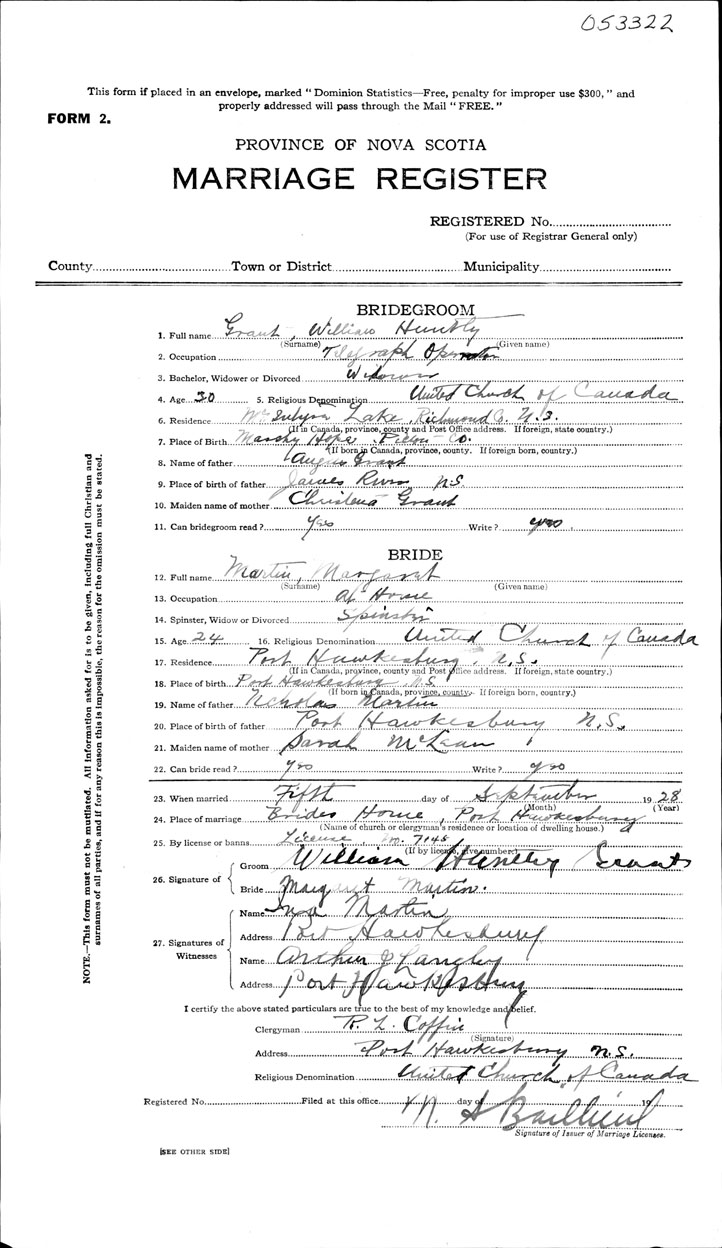 053322
This form if placed in an envelope, marked "Dominion Statistics—Free, penalty for improper use $300," and
properly addressed will pass through the Mail "FREE."
FORM 2.
PROVINCE OF NOVA SCOTIA
MARRIAGE REGISTER
REGISTERED No.
(For use of Registrar General only)
County Town or District Municipality
BRIDEGROOM
1. Full name Grant, William Huntly
(Surname) (Given name)
2. Occupation Telegraph Operator
3. Bachelor, Widower or Divorced Widower
4. Age 30 5. Religious Denomination United Church of Canada
6. Residence Lake, Richmond Co. N.S.
(If in Canada, province, county and Post Office address. If foreign, state country.)
7. Place of Birth Marshy Hope, Pictou Co.
(If born in Canada, province, county. If foreign born, country.)
8. Name of father Angus Grant
9. Place of birth of father James River N.S.
10. Maiden name of mother Christena Grant
11. Can bridegroom read? Yes Write? yes
BRIDE
12. Full name Martin, Margaret
(Surname) (Given name)
13. Occupation At Home
14. Spinster, Widow or Divorced Spinster
15. Age 24 16. Religious Denomination United Church of Canada
17. Residence Port Hawkesbury, N.S.
(If in Canada, province, county and Post Office address. If foreign, state country.)
18. Place of birth Port Hawkesbury N.S.
(If born in Canada, province, county. If foreign born, country.)
19. Name of father Nicholas Martin
20. Place of birth of father Port Hawkesbury N.S.
21. Maiden name of mother Sarah McLean
22. Can bride read? yes Write? yes
23. When married Fifth day of September 1928
(Month) (Year)
24. Place of marriage Brides Home, Port Hawkesbury
(Name of church or clergyman's residence or location of dwelling house.)
25. By license or banns License m. 7145
(If by license, give number)
26. Signature of Groom William Huntley Grant
Bride Margaret Martin.
27. Signatures of Witnesses Name Martin
Address Port Hawkesbury
Name Arthur J Langley
Address Port Hawkesbury
I certify the above stated particulars are true to the best of my knowledge and belief.
Clergyman R. L. Coffin
(Signature)
Address Port Hawkesbury N.S.
Religious Denomination United Church of Canada
Registered No. Filed at this office day of 19
Signature of Issuer of Marriage Licenses.
[SEE OTHER SIDE]
NOTE.—This form must not be mutilated. All information asked for is to be given, including full Christian and
surnames of all parties, and if for any reason this is impossible, the reason for the omission must be stated.